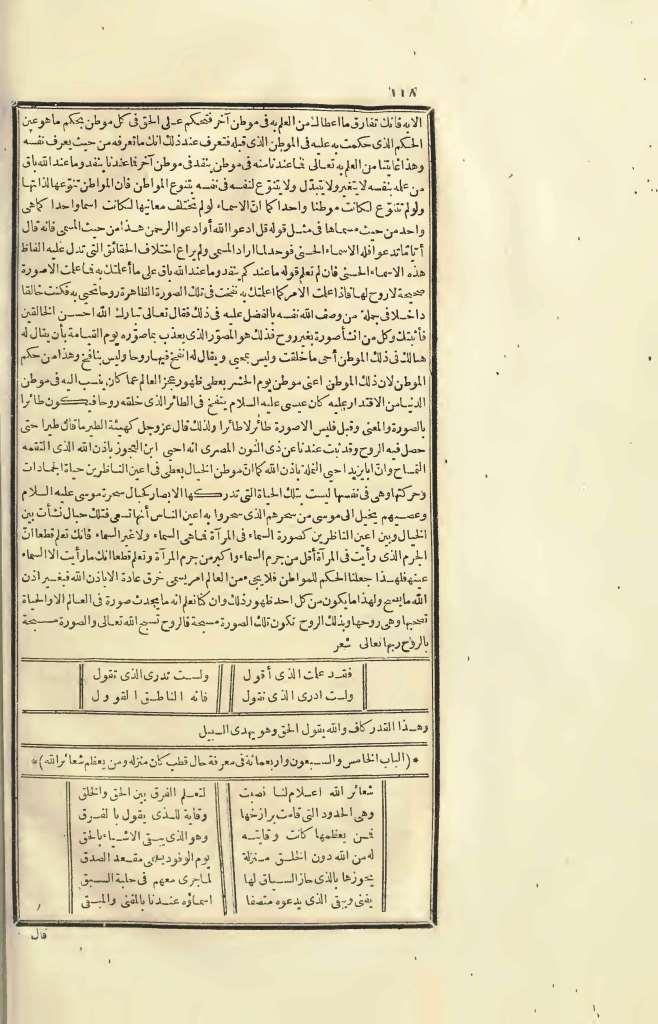 ١١٨
الابه فانك تفارق ما اعطاك من العلم به فى موطن آخر فتحكم على الحق فى كل موطن بحكم ما هو عين
الحكم الذى حكمت به عليه فى الموطن الذى قبله فتعرف عند ذلك انك ما تعرفه من حيث يعرف نفسه
وهذا غايتنا من العلم به تعالى فما عندنا منه فى موطن ينفد فى موطن آخر فما عندنا ينفد وما عند الله باق
من علمه بنفسه لا يتغير ولا يتبدّل ولا يتنوّع لنفسه فى نفسه بتنوع المواطن فان المواطن تنوّعها لذاتها
ولو لم تتنوّع لكانت موطنا واحدا كما انّ الاسماء لو لم تختلف معانيها لكانت اسما واحدا كما هى
واحد من حيث مسماها فى مثل قوله قل ادعوا الله أو ادعوا الرحمن هذا من حيث المسمى فانه قال
أيّا ما تدعوا فله الاسماء الحسنى فوحد لما اراد المسمى ولم يراع اختلاف الحقائق التى تدل عليه الفاظ
هذه الاسماء الحسنى فان لم تعلم قوله ما عندكم ينفد وما عند الله باق على ما أعلمتك به فما علمت الاصورة
صحيحة لا روح لها فاذا علمت الامر كما اعلمتك به نفخت فى تلك الصورة الظاهرة روحا تحيى به فكنت خالقا
داخلا فى جملة من وصف الله نفسه بالفضل عليه فى ذلك فقال تعالى تبارك الله احسن الخالقين
فأثبتك وكل من انشأ صورة بغير روح فذلك هو المصوّر الذى يعذب بما صوّره يوم القيامة بأن يقال له
هنالك فى ذلك الموطن أحى ما خلقت وليس بمحيى ويقال له انفخ فيها روحا وليس بنافخ وهذا من حكم
الموطن لان ذلك الموطن اعنى موطن يوم الحشر يعطى ظهور عجز العالم عما كان ينسب اليه فى موطن
الدنيا من الاقتدار عليه كان عيسى عليه السلام ينفخ فى الطائر الذى خلقه روحا فيكون طائرا
بالصورة والمعنى وقبل فليس الاصورة طائر لا طائرا ولذلك قال عز وجل كهيئة الطير ما قال طيرا حتى
حصل فيه الروح وقد ثبت عندنا عن ذى النون المصرى انه احيى ابن العجوز باذن الله الذى التقمه
التمساح وانّ ابا يزيد احيى النملة باذن الله كما انّ موطن الخيال يعطى فى اعين الناظرين حياة الجمادات
وحركتها وهى فى نفسها ليست بتلك الحياة التى تدركها الابصار كحبال سحرة موسى عليه السلام
وعصيهم يخيل الى موسى من سحرهم الذى سحروا به اعين الناس أنها تسعى فتلك حبال نشأت بين
الخيال وبين اعين الناظرين كصورة السماء فى المرآة فما هى السماء ولا غير السماء فانك تعلم قطعا انّ
الجرم الذى رأيت فى المرآة أقل من جرم السماء واكبر من جرم المرآة وتعلم قطعا انك ما رأيت الا السماء
عينها فلهذا جعلنا الحكم للمواطن فلا يجىء من العالم امر يسمى خرق عادة الا باذن الله فبغير اذن
الله ما يصح ولهذا ما يكون من كل احد ظهور ذلك وان كنا نعلم انه ما يحدث صورة فى العالم الا والحياة
تصحبها وهى روحها وبذلك الروح تكون تلك الصورة مسبحة فالروح تسبح الله تعالى والصورة مسبحة
بالروح ربها تعالى شعر
فقد علمت الذى أقول ولست تدرى الذى تقول
ولست ادرى الذى تقول فانه الناطق القوول
وهذا القدر كاف والله يقول الحق وهو يهدى السبيل
*(الباب الخامس والسبعون واربعمائة فى معرفة حال قطب كان منزله ومن يعظم شعائر الله)*
شعائر الله اعلام لنا نصبت لتعلم الفرق بين الحق والخلق
وهى الحدود التى قامت برازخها وقاية للذى يقول بالفرق
فمن يعظمها كانت وقايته وهو الذى يتقى الاشياء بالحق
له من الله دون الخلق منزلة يوم الوفود يسمى مقعد الصدق
يحوزها بالذى حاز السباق لها لما جرى معهم فى حلبة السبق
يفنى ويبقى الذى يدعوه متصفا اسماؤه عندنا بالمفنى والمبقى
قال